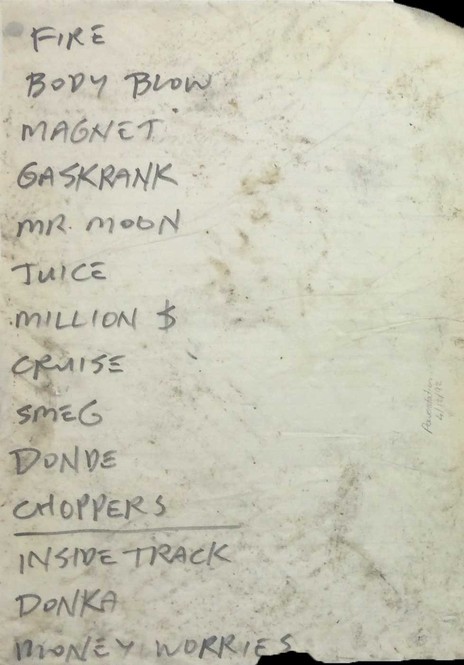 FIRE
BODY BLOW
MAGNET
GASKRANK
MR. MOON
JUICE
MILLION $
CRUISE
SMEG
DONDE
CHOPPERS
INSIDE TRACK
DONKA
MONEY WORRIES